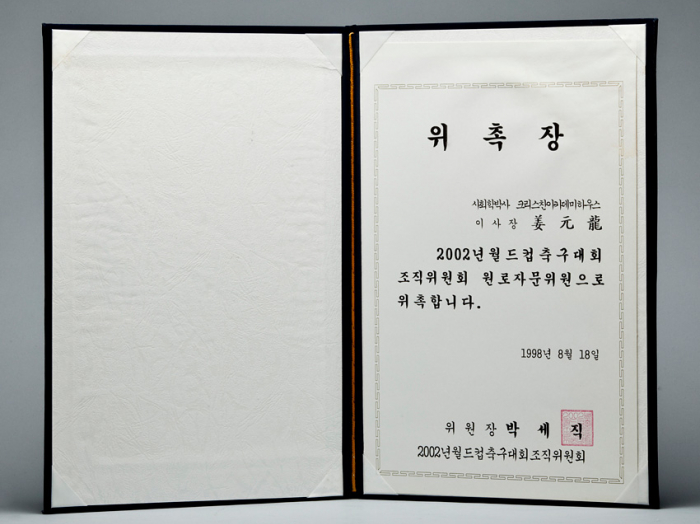 위 촉 장
사회학박사 크리스찬아카데미하우스
이사장 姜 元 龍
2002년월드컵축구대회
조직위원회 원로자문위원으로
위촉합니다.
1998년 8월 18일
위 원 장 박 세 직
2002년월드컵축구대회조직위원회